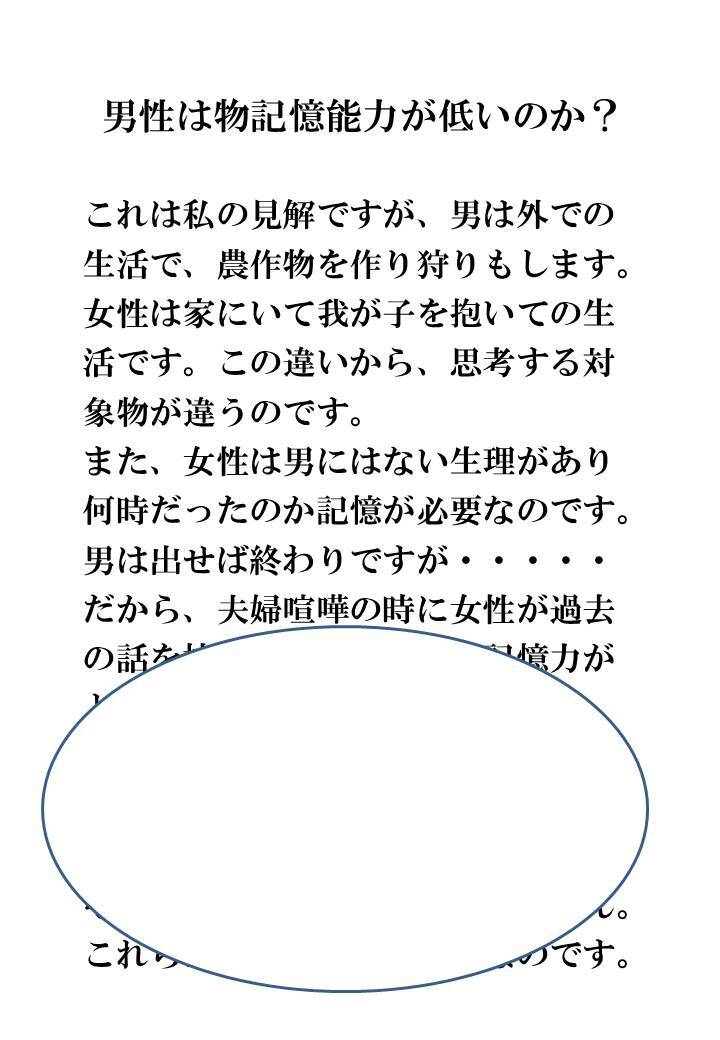 男性は物記憶能力が低いのか？
これは私の見解ですが、男は外での
生活で、農作物を作り狩りもします。
女性は家にいて我が子を抱いての生
活です。この違いから、思考する対
象物が違うのです。
また、女性は男にはない生理があり
何時だったのか記憶が必要なのです。
男は出せば終わりですが・・・・・
だから、夫婦喧嘩の時に女性が過去
の話を 記憶力が
ん。
これら のです。